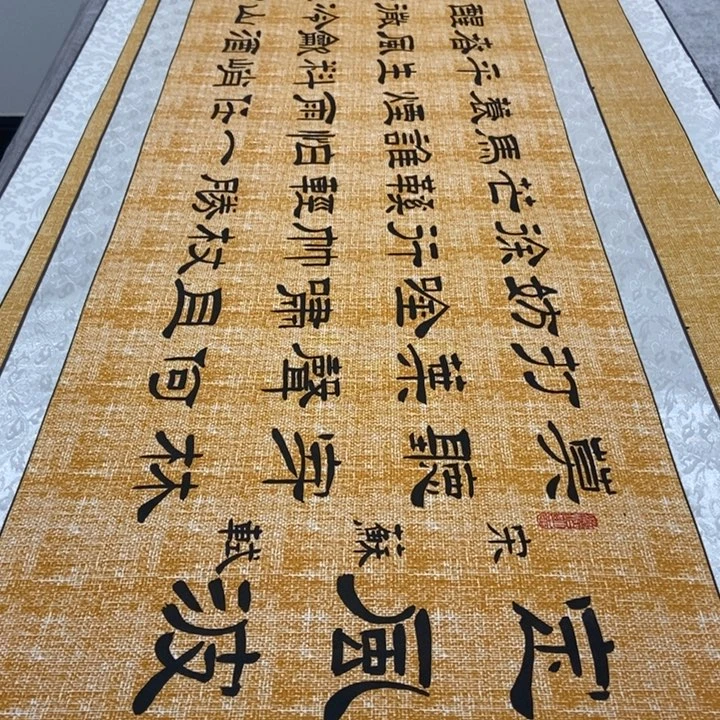 定風波
宋蘇軾
莫聽穿林
打葉聲何
妨吟嘯且
徐行竹杖
芒鞋輕勝
馬誰怕一
蓑煙雨任
平生料峭
春風龡酒
醒微冷山